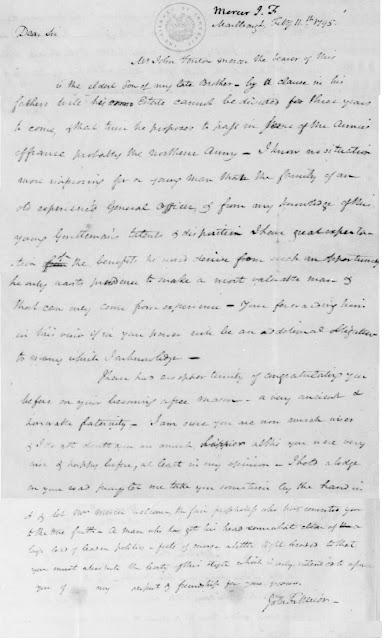 Mercer J. F.
Marlbrough Feby 11th 1795.
Dear Sir
Mr John Fenton Mercer the bearer of this
is the eldest Son of my late Brother – by a clause in his
fathers will his Estate cannot be divided for three years
to come, & that time he proposes to pass in some of the Armies
of france probably the northern Army – I know no situation
more improving for a young Man than the family of an
old experienced General officer, & from my knowledge of this
young Gentleman's talents & disposition I have great expecta-
tion the benefits he would derive from such an Opportunity
he only wants prudence to make a most valuable man &
that can only come from experience – Your forwarding him
in his views if in your power will be an additional Obligation
to many which I acknowledge –
I have had no opportunity of congratulating you
before on your becoming a free mason – a very ancient &
honorable fraternity – I am sure you are now much wiser
& I do not doubt you as much happier altho you were very
wise & happy before, at least in my opinion – I hold a lodge
on your road pray let me take you sometimes by the hand in
it & let Mrs Mercer welcome the fair who has converted you
to the true faith – A man who has got his head somewhat clear of a
huge load of leaden politics feels of course a little light headed so that
you must the of this which is only intended to assure
you of my respect & friendship for you
John F. Mercer.